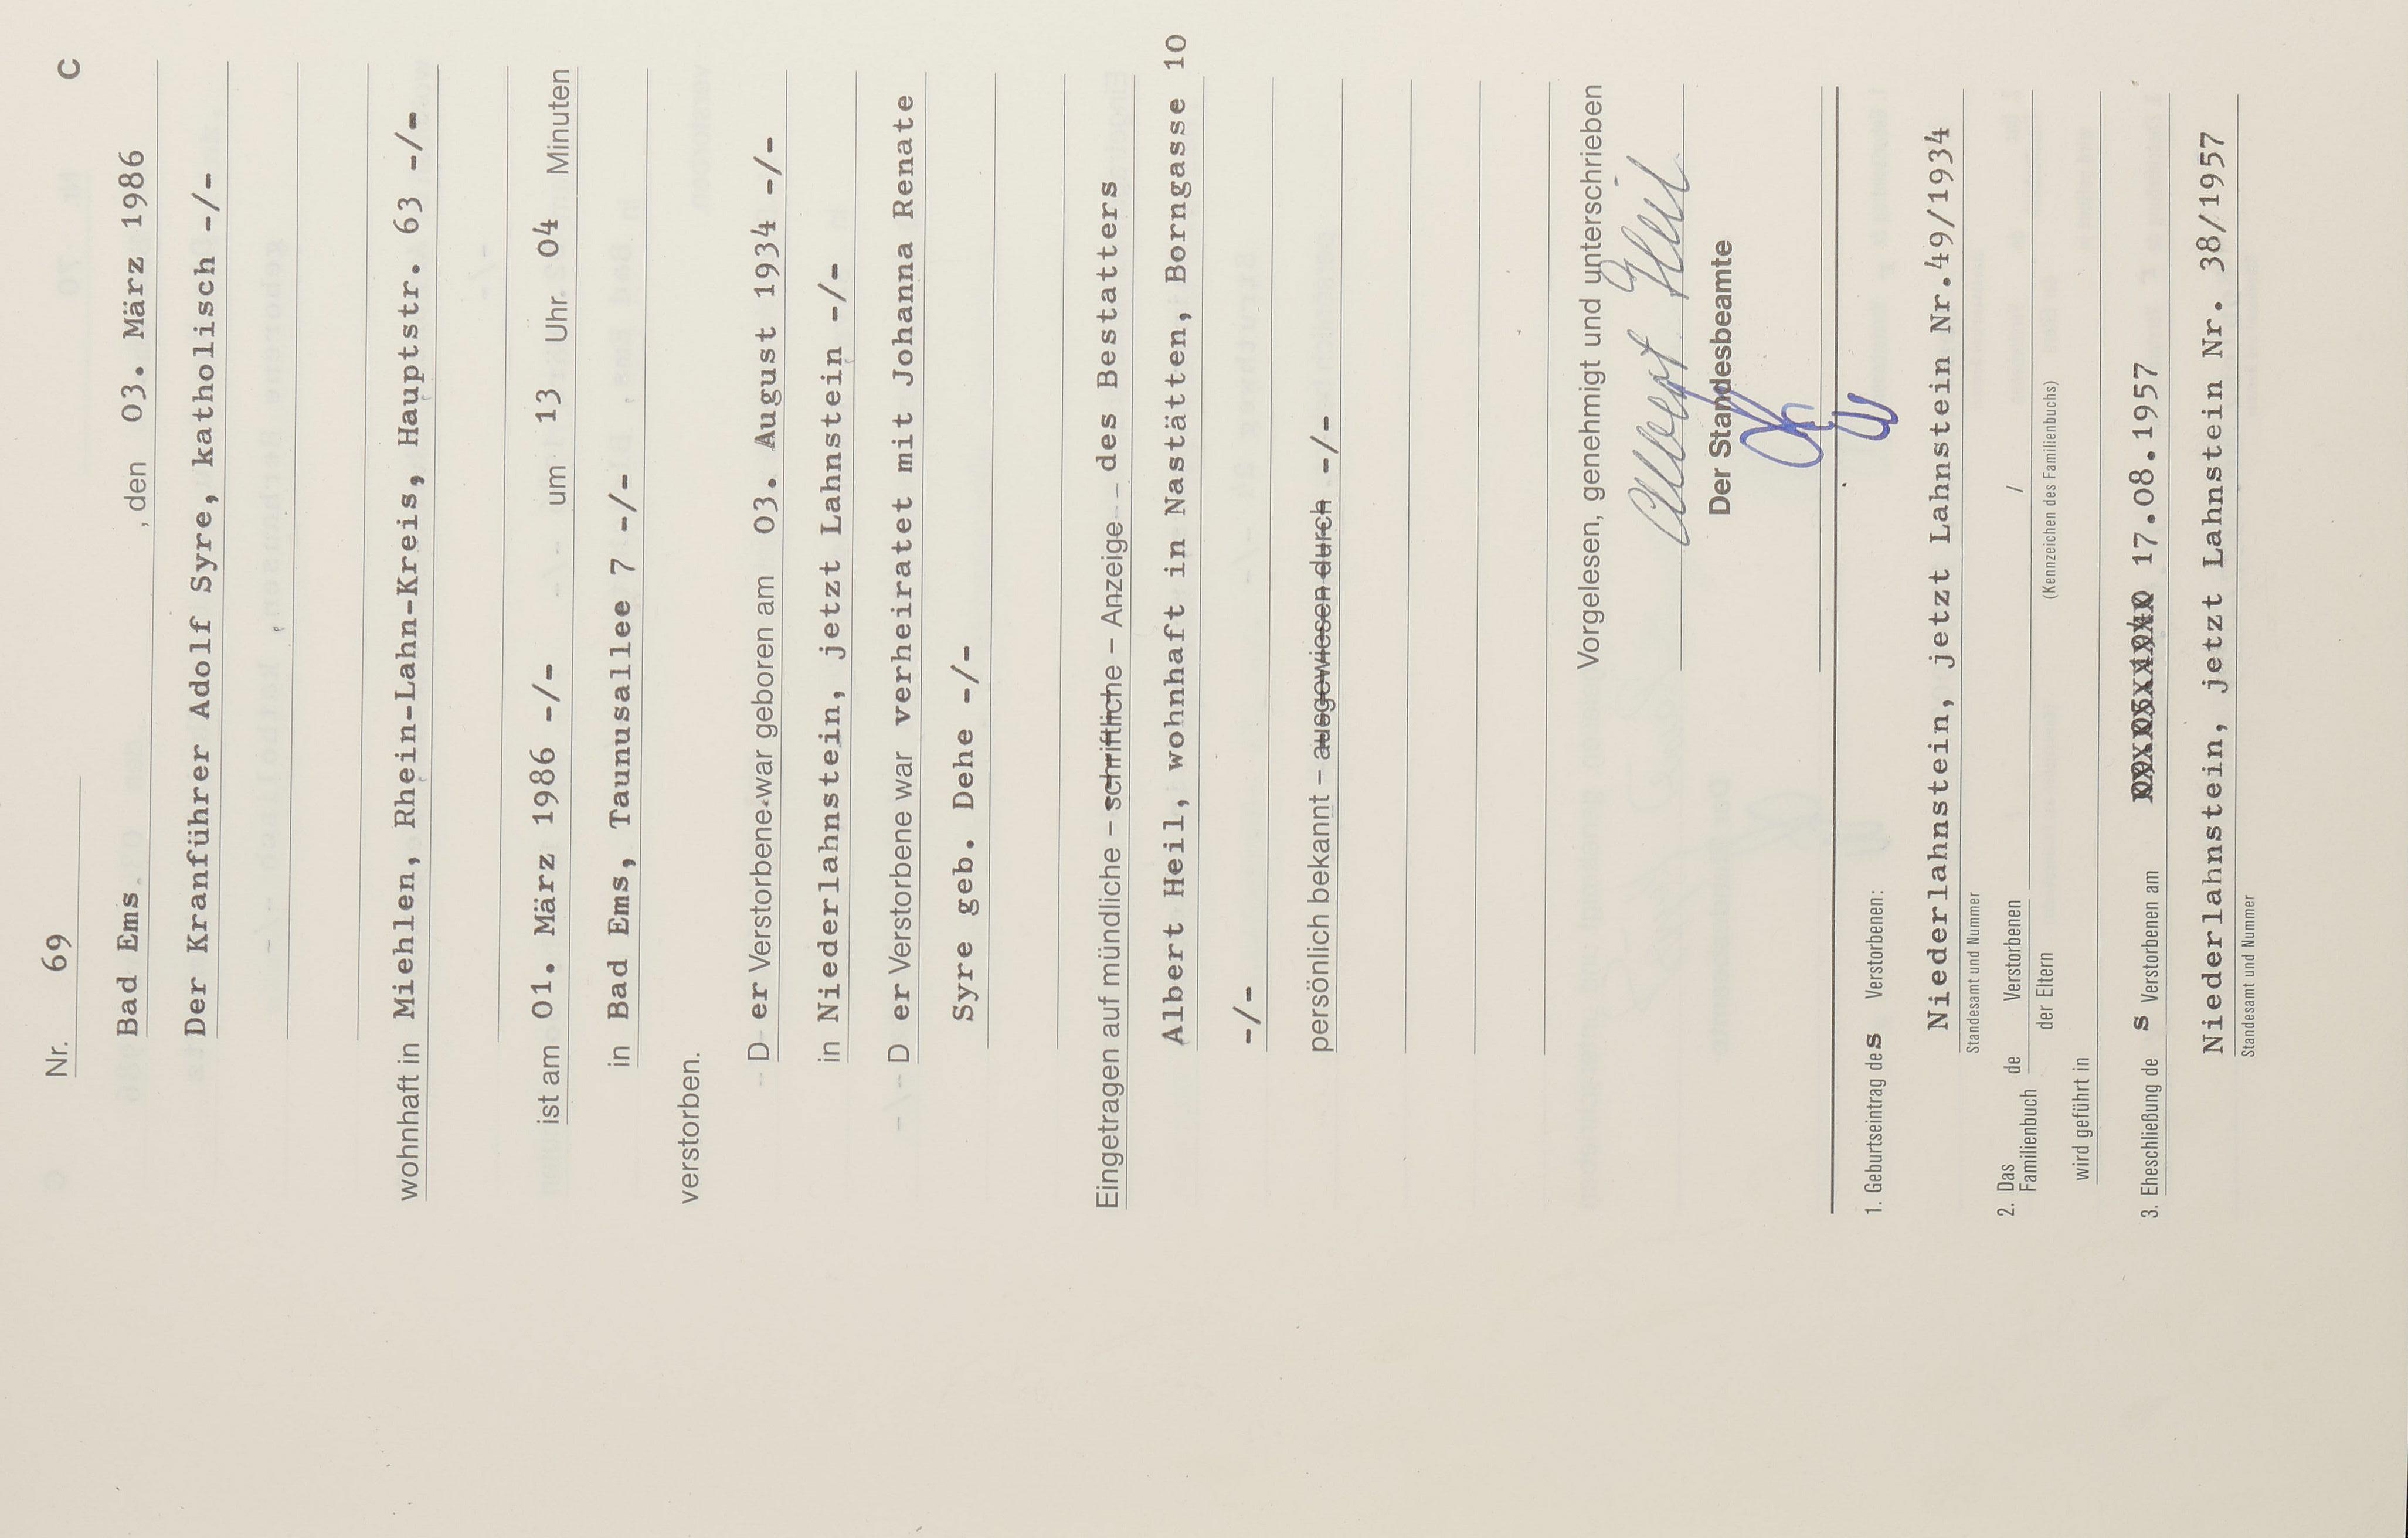 C
Nr. 69
Bad Ems , den 03. März 1986
Der Kranführer Adolf Syre, katholisch -/-
wohnhaft in Miehlen, Rhein-Lahn-Kreis, Hauptstr. 63 -/-
ist am 01. März 1986 -/- um 13 Uhr 04 Minuten
in Bad Ems, Taunusallee 7 -/-
verstorben.
D er Verstorbene war geboren am 03. August 1934 -/-
in Niederlahnstein, jetzt Lahnstein -/-
D er Verstorbene war verheiratet mit Johanna Renate
Syre geb. Dehe -/-
Eingetragen auf mündliche – schriftliche – Anzeige – des Bestatters
Albert Heil, wohnhaft in Nastätten, Borngasse 10
-/-
persönlich bekannt – ausgewiesen durch -/-
Vorgelesen, genehmigt und unterschrieben
Albert Heil
Der Standesbeamte
1. Geburtseintrag des Verstorbenen:
Niederlahnstein, jetzt Lahnstein Nr.49/1934
Standesamt und Nummer
2. Das Familienbuch de Verstorbenen /
der Eltern (Kennzeichen des Familienbuchs)
wird geführt in
3. Eheschließung de s Verstorbenen am 17.08.1957
Niederlahnstein, jetzt Lahnstein Nr. 38/1957
Standesamt und Nummer